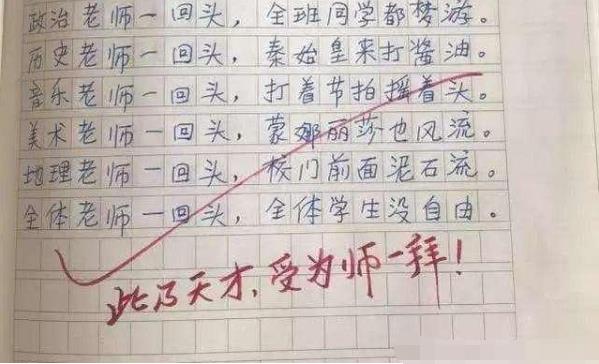 政治老师一回头，全班同学都梦游。
历史老师一回头，秦始皇来打酱油。
音乐老师一回头，打着节拍摇着头。
美术老师一回头，蒙娜丽莎也风流。
地理老师一回头，校门前面泥石流。
全体老师一回头，全体学生没自由。
此乃天才，受为师一拜！